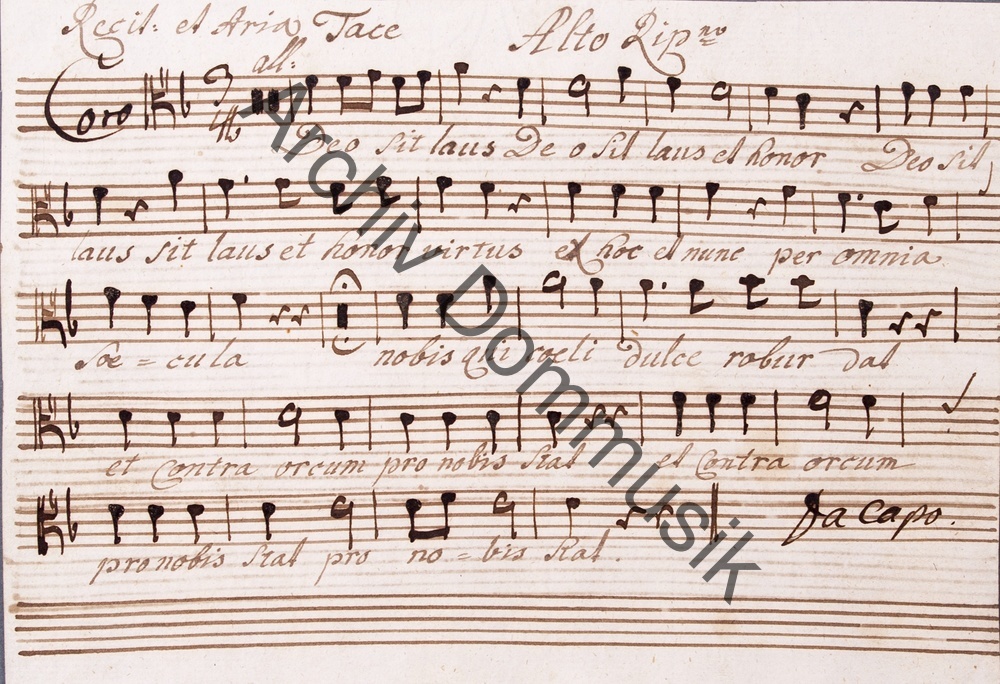 Recit: et Aria Tace Alto Ripno
all:
Coro 3/4
Deo sit laus De o sit laus et honor Deo sit
laus sit laus et honor virtus ex hoc et nunc per omnia
Soe = cula nobis qui coeli dulce robur dat
et contra orcum pro nobis stat et contra orcum
pro nobis stat pro no = bis stat.
Da capo.
Archiv Dommusik